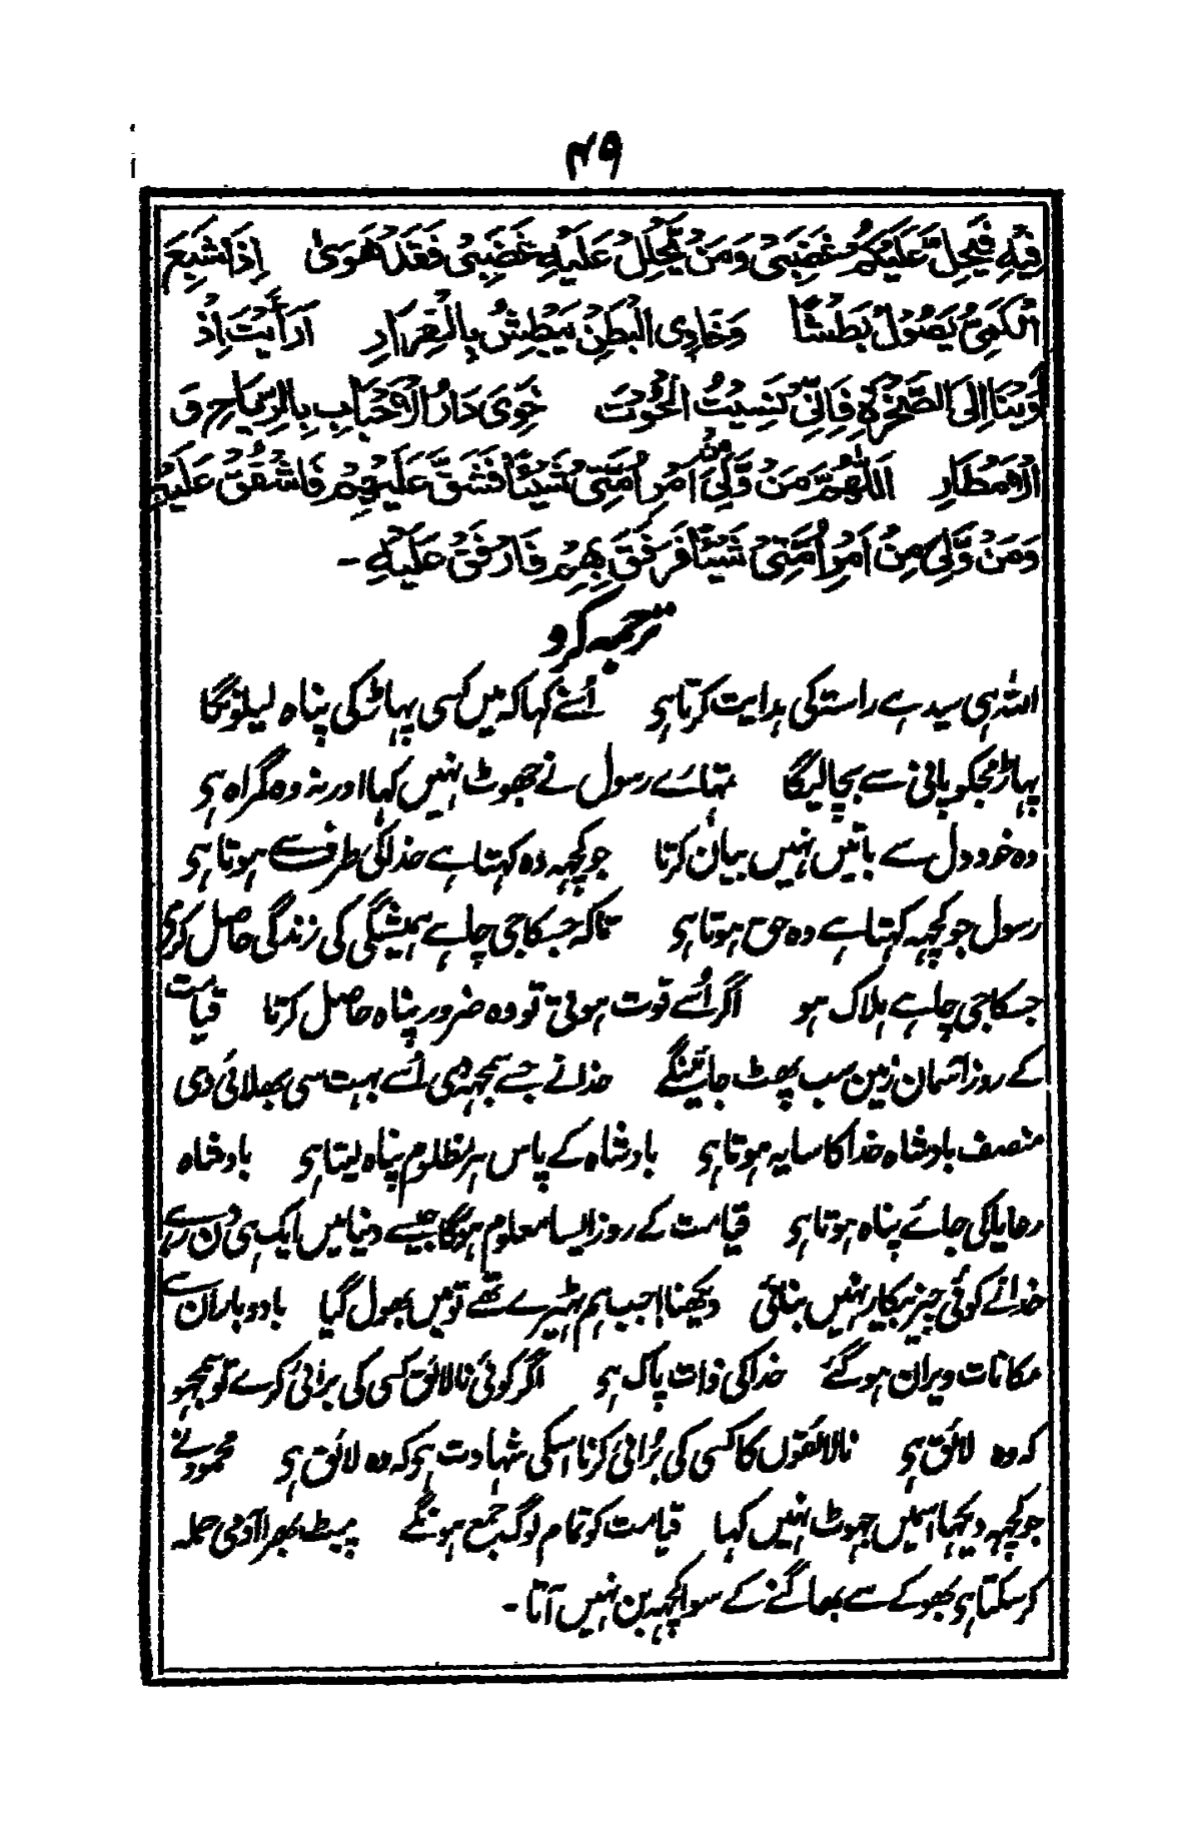 ۴۹
فِيْهِ فَيَحِلَّ عَلَيْكُمْ غَضَبِيْ وَمَنْ يَّحْلِلْ عَلَيْهِ غَضَبِيْ فَقَدْ هَوٰى اِذَا شَبِعَ
الْكَمِيُّ يَصُوْلُ بَطْشًا وَخَاوِى الْبَطْنِ يَبْطِشُ بِالْفِرَارِ اَرَاَيْتَ اِذْ
اَوَيْنَا اِلَى الصَّخْرَةِ فَاِنِّيْ نَسِيْتُ الْحُوْتَ خَوِىَ دَارُ الْاَحْبَابِ بِالرِّيَاحِ وَ
الْاَمْطَارِ اَللّٰهُمَّ مَنْ وَّلِيَ مِنْ اَمْرِ اُمَّتِيْ شَيْئًا فَشَقَّ عَلَيْهِمْ فَاشْقُقْ عَلَيْهِ
وَمَنْ وَّلِيَ مِنْ اَمْرِ اُمَّتِيْ شَيْئًا فَرَفَقَ بِهِمْ فَارْفُقْ عَلَيْهِ -
ترجمہ کرو
اللہ ہی سیدہے راستہ کی ہدایت کرتا ہی اُسنے کہا کہ میں کسی پہاڑ کی پناہ لیلونگا
پہاڑ مجکو پانی سے بچالیگا تمہارے رسول نے جھوٹ نہیں کہا اور نہ وہ گمراہ ہی
وہ خود دل سے باتیں نہیں بیان کرتا جو کچہہ وہ کہتا ہے خدا کی طرف سے ہوتا ہی
رسول جو کچہہ کہتا ہے وہ حق ہوتا ہی تاکہ جسکا جی چاہے ہمیشگی کی زندگی حاصل کری
جسکا جی چاہے ہلاک ہو اگر اُسے قوت ہوتی تو وہ ضرور پناہ حاصل کرتا قیامت
کے روز آسمان زمین سب پھٹ جائینگے خدا نے جسے سمجہہ دی اُسے بہت سی بھلائی دی
منصف بادشاہ خدا کا سایہ ہوتا ہی بادشاہ کے پاس ہر مظلوم پناہ لیتا ہی بادشاہ
رعایا کی جائے پناہ ہوتا ہی قیامت کے روز ایسا معلوم ہوگا جیسے دنیا میں ایک ہی دن رہے
خدا نے کوئی چیز بیکار نہیں بنائی دیکھنا جب ہم ٹہیرے تھے تو میں بھول گیا باد و باران سے
مکانات ویران ہو گئے خدا کی ذات پاک ہی اگر کوئی نالائق کسی کی برائی کرے تو سمجہو
کہ وہ لائق ہی نالائقوں کا کسی کی بُرائی کرنا اسکی شہادت ہی کہ وہ لائق ہی محمود نے
جو کچہہ دیکہا اسمیں جہوٹ نہیں کہا قیامت کو تمام لوگ جمع ہونگے پیٹ بھرا آدمی حملہ
کر سکتا ہی بھوکے سے بھاگنے کے سوا کچہہ بن نہیں آتا -